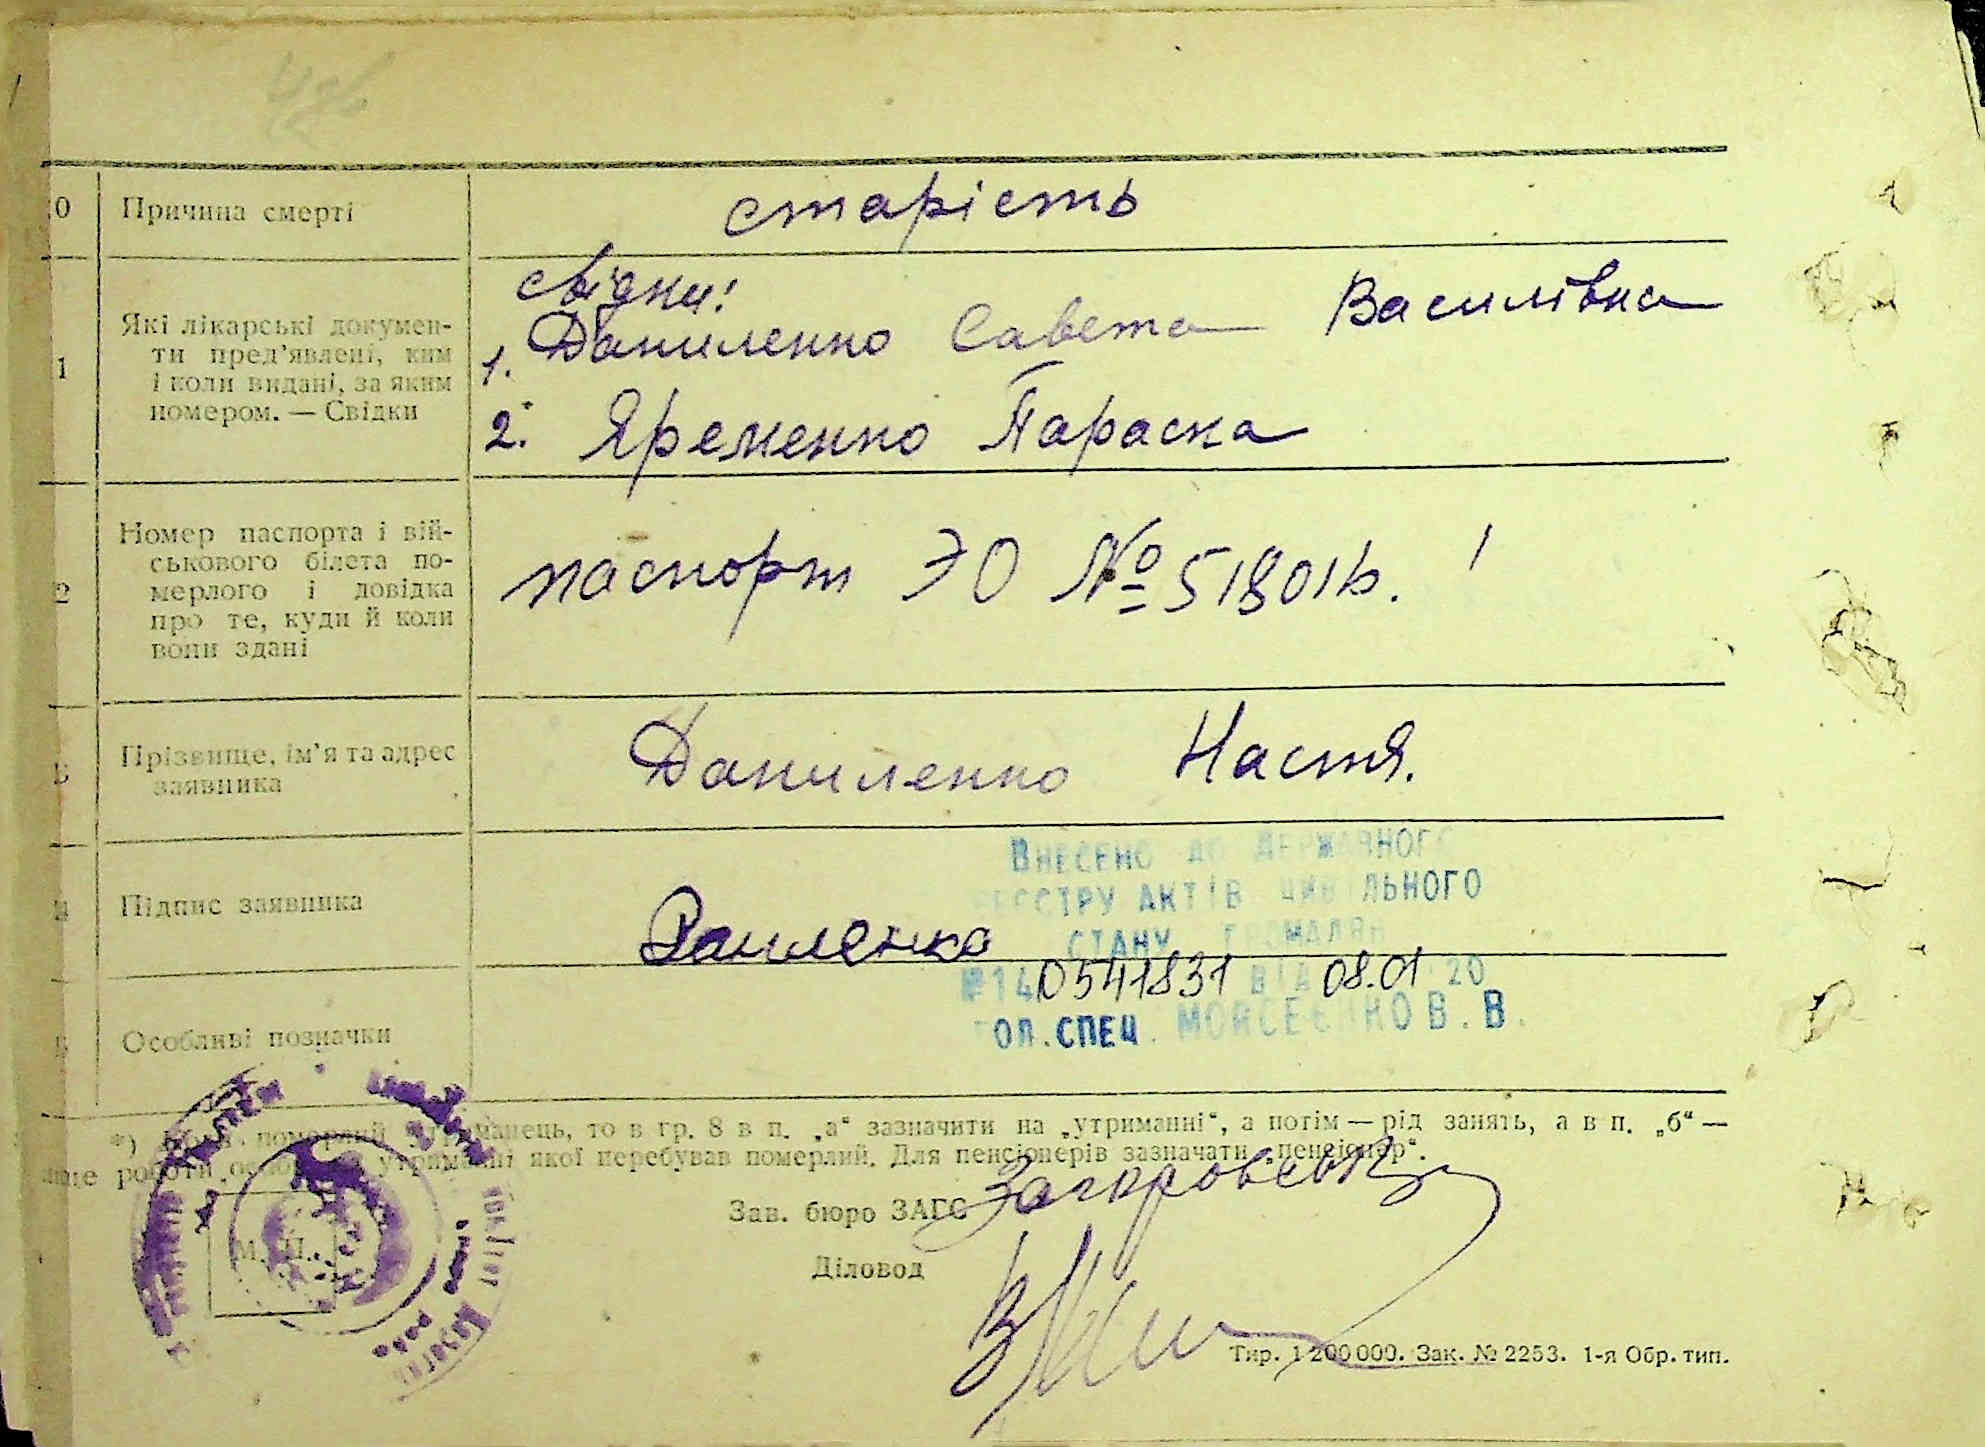 0 Причина смерті старість
свідки!
1 Які лікарські докумен-
ти пред'явлені, ким
і коли видані, за яким
номером. — Свідки
1. Даниленко Савета Василівна
2. Яременко Параска
2 Номер паспорта і вій-
ськового білета по-
мерлого і довідка
про те, куди й коли
вони здані
паспорт ЭО №
Прізвище, ім'я та адрес
заявника
Даниленко Настя.
Підпис заявника
Внесено до Державного
реєстру актів цивільного
стану громадян
№140541831 від 08.01 20
гол. спец. Моисеєнко В. В.
Особливі позначки
*) померлий утриманець, то в гр. 8 в п. „а“ зазначити на „утриманні“, а потім — рід занять, а в п. „б“ —
роботи утриманні якої перебував померлий. Для пенсіонерів зазначати „пенсіонер“.
Зав. бюро ЗАГС
М. П.
Діловод
Тир. 1 200 000. Зак. № 2253. 1-я Обр. тип.